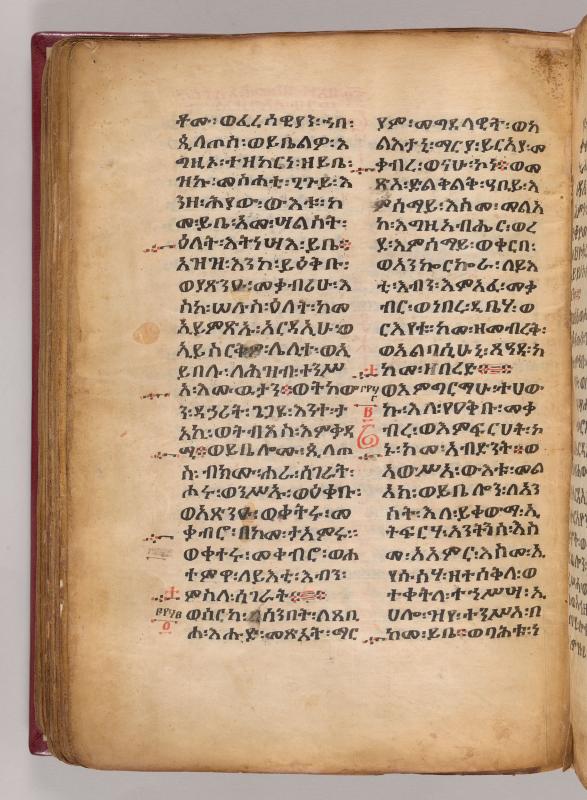 ቶሙ፡ወፈረሳዊያን፡ኀበ፡
ጲላጦስ፡ወይቤልዎ፡እ
ግዚኦ፡ተዝከርነ፡ዘይቤ፡
ዝኩ፡መስሐቲ፡ጊጉይ፡እ
ንዘ፡ሕያው፡ውእቱ፡ከ
መ፡ይቤ፡እመ፡ሣልስት፡
ዕለት፡እትነሣእ፡ይቤ፨
አዝዝ፡እንከ፡ይዕቅቡ፡
ወያጽንዑ፡መቃብሪሁ፡እ
ስከ፡ሠሉስ፡ዕለት፡ከመ
ኢይምጽኡ፡አርዳኢሁ፡ወ
ኢይስርቅዎ፡ሌሊተ፡ወኢ
ይበሉ፡ለሕዝብ፡ተንሥ
አ፡እሙታን፨ወትከው
ን፡ዳኃሪት፡ጌጋዩ፡እንተ፡ተ
አኪ፡ወትብእስ፡እምቀዳ
ሚ፨ወይቤሎሙ፡ጲላጦ
ስ፡ብክሙ፡ሐራ፡ሰገራት፡
ሖሩ፡ወንሥኡ፡ወዕቀቡ፡
ወአጽንዑ፡ወቀትሩ፡መ
ቃብሮ፡በከመ፡ታአምሩ፡
ወቀተሩ፡መቃብሮ፡ወሐ
ተምዋ፡ለይእቲ፡እብን፡
ምስለ፡ሰገራት፨
ወሰርከ፡ሰንበት፡ለጸቢ
ሐ፡እሑድ፡መጽአት፡ማር
ያም፡መግደላዊት፡ወካ
ልእታኒ፡ማርያ፡ይርአያ፡መ
ቃብረ፡ወናሁ፡ኮነ፨ወመ
ጽአ፡ድልቅልቅ፡ዓቢይ፡እ
ምሰማይ፡እስመ፡መልአ
ከ፡እግዚአብሔር፡ወረ
ደ፡እምሰማይ፡ወቀርበ፡
ወአንኰርኰራ፡ለይእ
ቲ፡እብን፡እምአፈ፡መቃ
ብር፡ወነበረ፡ዲቤሃ፡ወ
ርእየቱ፡ከመ፡ዘመብረቅ፡
ወአልባሲሁኒ፡ጸዓዳ፡ከ
ከመ፡ዘበረድ፨
ወእምግርማሁ፡ተሀው
ኩ፡እለ፡የዐቅቡ፡መቃ
ብረ፡ወእምፍርሀት፡ኮ
ኑ፡ከመ፡አብድንት፨ወ
አውሥአ፡ውእቱ፡መል
አከ፡ወይቤሎን፡ለአን
ስት፡እለ፡ይቀውማ፡ኢ
ትፍርሃ፡አንትንሰ፡እስ
መ፡አአምር፡እስመ፡ኢ
የሱስሃ፡ዘተሰቅለ፡ወ
ተቀትለ፡ተኀሥሣ፡ኢ
ሀሎ፡ዝየ፡ተንሥአ፡በ
ከመ፡ይቤ፨ወባሕቱ፡ነ